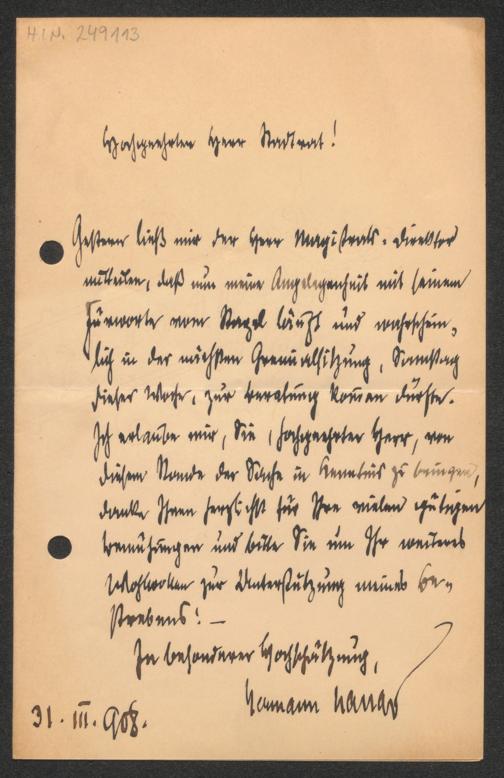 H.I.N. 249113
Hochgeehrter Herr Stadtrat!
Gestern ließ mir der Herr Magistrats-Direktor
mitteilen, daß nun meine Angelegenheit mit seinem
Fürworte vom Stapel läuft und wahrschein-
lich in der nächsten Gremialsitzung, Samstag
dieser Woche, zur Beratung kommen dürfte.
Ich erlaube mir, Sie, hochgeehrter Herr, von
diesem Stande der Sache in Kenntnis zu bringen,
danke Ihnen herzlichst für Ihre vielen gütigen
Bemühungen und bitte Sie um Ihr weiteres
Wohlwollen zur Unterstützung meines Be-
strebens! —
In besonderer Hochschätzung,
31. III. 908.